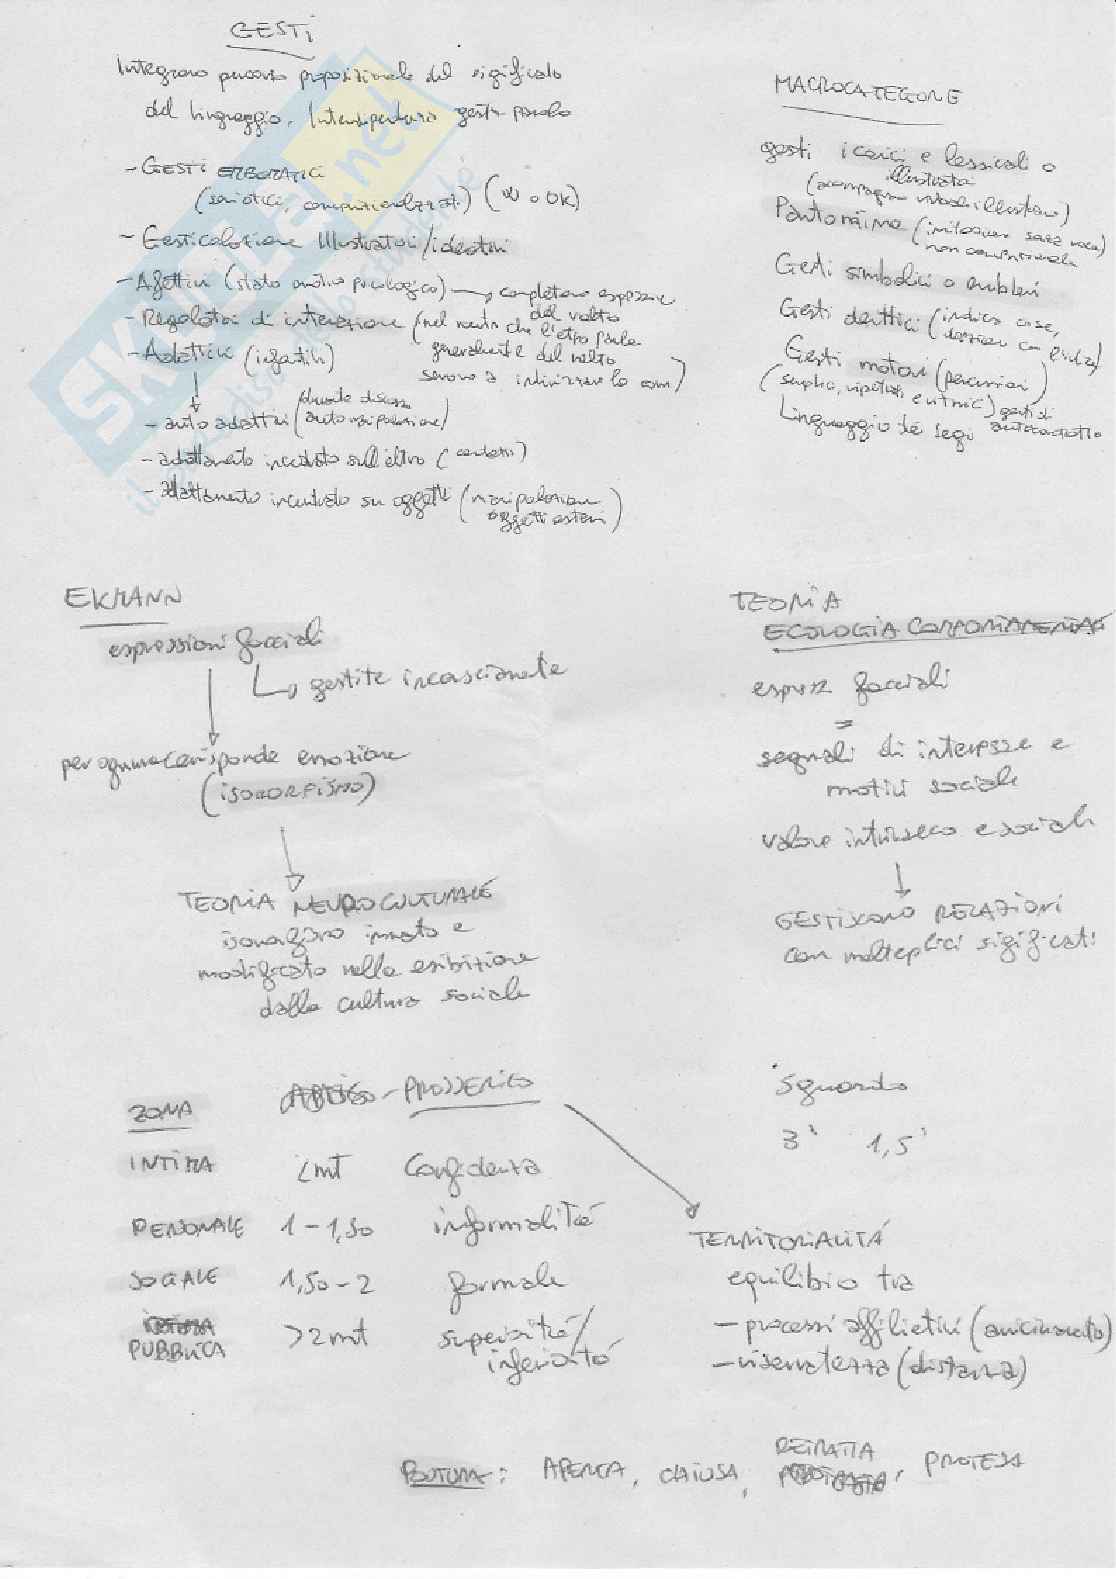 GESTI
Integrano percorso proposizionale del significato
del linguaggio. Interdipendenza gesti-parola
- GESTI EMBLEMATICI
(semiotici, convenzionalizzati) (W o OK)
- Gesticolazione Illustratori/ideativi
- Affettivi (stato emotivo psicologico) → completano espressione
del volto
- Regolatori di interazione (nel mentre che l'altro parla
generalmente del volto
servono a indirizzare la com)
- Adattivi (infantili)
- auto adattivi (durante discorso
automanipolazione)
- adattamento incentrato sull'altro (
- adattamento incentrato su oggetti (manipolazione
oggetti esterni)
MACROCATEGORIE
gesti iconici e lessicali o
illustratori
(accompagna
Pantomima (imitazione senza voce)
non convenzionale
Gesti simbolici o emblemi
Gesti deittici (indica cose,
direzioni con l'indice)
Gesti motori (percussioni)
(semplici, ripetuti e ritmici) gesti di
autocontatto
Linguaggio dei segni
EKMANN
espressioni facciali
→ gestite inconsciamente
per ognuna corrisponde emozione
(ISOMORFISMO)
TEORIA NEUROCULTURALE
isomorfismo innato e
modificato nella esibizione
dalla cultura sociale
TEORIA
ECOLOGIA COMPORTAMENTALE
espress facciali
=
segnali di interesse e
motivi sociale
valore intrinseco e sociale
GESTISCONO RELAZIONI
con molteplici significati
ZONA - PROSSEMICO
INTIMA <mt Confidenza
PERSONALE 1 - 1,50 informalità
SOCIALE 1,50 - 2 formale
PUBBLICA >2mt superiorità/
inferiorità
Sguardo
3' 1,5'
TERRITORIALITÁ
equilibrio tra
- processi affiliativi (avvicinamento)
- riservatezza (distanza)
POSTURA: APERTA, CHIUSA, RETRATTA, PROTESA
SKUOLA.net